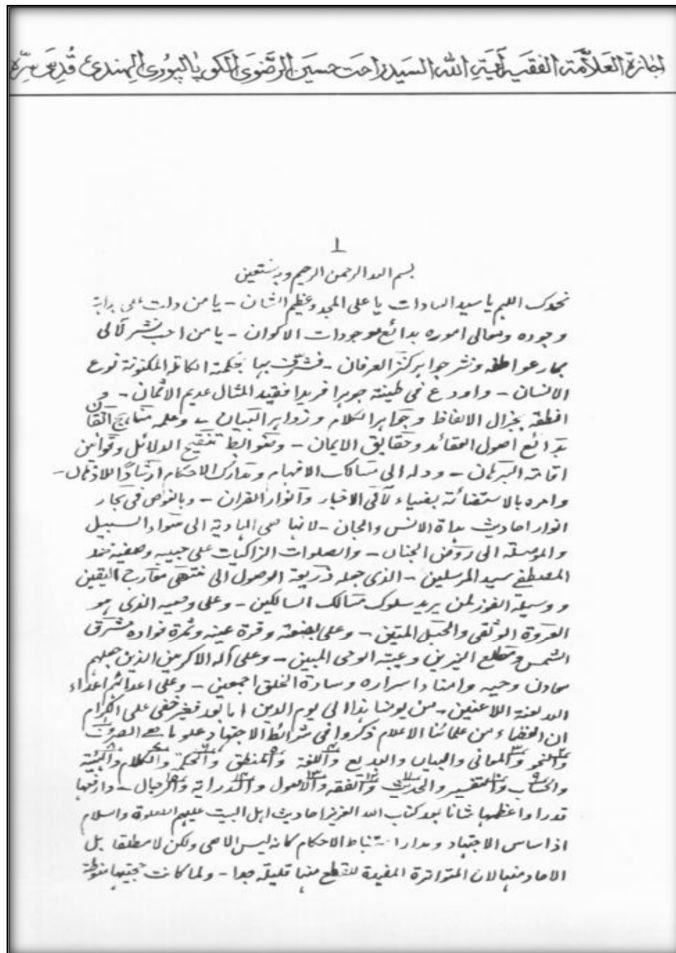 اجازة العلامة الفقيه آية الله السيد راحت حسين الرضوي الگوپالپوري الهندي قدس سره
١
بسم الله الرحمن الرحيم وبه نستعين
نحمدك اللهم يا سيد السادات يا علي المجد وعظيم الشان - يا من دلت على بداية
وجوده ومعالي اموره بدائع موجودات الاكوان - يا من احب نشر لآلي
بحار عواطفه ونشر جواهر كنز العرفان - فشرف بها بحكمة الكاملة المكنونة نوع
الانسان - واودع في طينته جوهرا فريدا فقيد المثال عديم الاثمان - و
انطقه بجزال الالفاظ وجواهر الكلام وزواهر البيان - وعلمه مناهج
بدائع اصول العقائد وحقايق الايمان - وضوابط تنقيح الدلائل وقوانين
اقامة البرهان - ودله الى مسالك الافهام ومدارك الاحكام ارشادا للاذهان -
وامره بالاستضائة بضياء لآلي الاخبار وانوار القران - وبالغوص في بحار
انوار احاديث هداة الانس والجان - لانها هي الهادية الى سواء السبيل
والموصلة الى روض الجنان - والصلوات الزاكيات على حبيبه وصفيه محمد
المصطفى سيد المرسلين - الذي جعله ذريعة الوصول الى منتهى معارج اليقين
ووسيلة الفوز لمن يريد سلوك مسالك السالكين - وعلى وصيه الذي هو
العروة الوثقى والحبل المتين - وعلى بضعته وقرة عينه وثمرة فواده مشرق
الشمس ومطلع النيرين وعيبة الوحي المبين - وعلى آله الاكرمين الذين جعلهم
معادن وحيه وامناء اسراره وسادة الخلق اجمعين - وعلى اعدائهم اعداء
الله لعنة اللاعنين - من يومنا هذا الى يوم الدين اما بعد فغير خفي على الكرام
ان الفضلاء من علمائنا الاعلام ذكروا في شرائط الاجتهاد علوما هي الصرف
والنحو والمعاني والبيان والبديع واللغة والمنطق والحكمة والكلام والهيئة
والحساب والتفسير والحديث والفقه والاصول والدراية والرجال - وارفعها
قدرا واعظمها شانا بعد كتاب الله العزيز احاديث اهل البيت عليهم الصلوة والسلام
اذ اساس الاجتهاد ومدار استنباط الاحكام كانه ليس الا هي ولكن لا مطلقا بل
الاحاد منها لان المتواترة المفيدة للقطع منها قليلة جدا - ولما كانت حجيتها منوطة